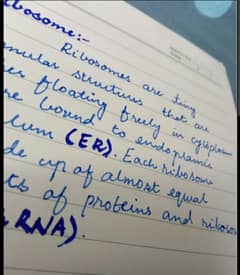 ibosome:-
Ribosomes are tiny
nular structures that are
floating freely in cytoplasm
re bound to endoplasmic
lum (ER). Each ribosome
de up of almost equal
ts of proteins and ribosom
RNA).